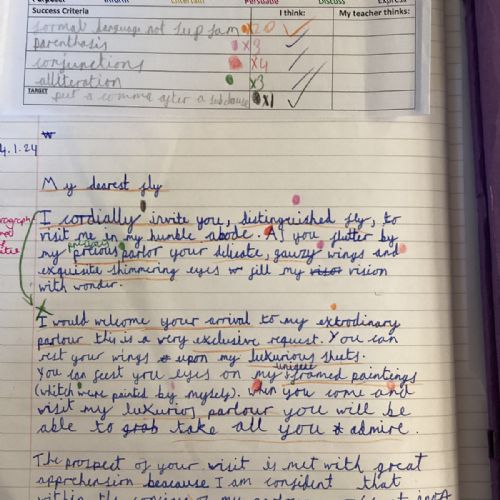 Purpose: Inform Entertain Persuade Discuss Express
Success Criteria I think: My teacher thinks:
formal language not slip jam x20
parenthasis x3
conjunctions x4
alliteration x3
TARGET put a comma after a subclause x1
4.1.24
My dearest fly
I cordially invite you, distinguished fly, to
visit me in my humble abode. As you flutter by
my precious parlor your delicate, gauzy wings and
exquisite shimmering eyes fill my vision
with wonder.
I would welcome your arrival to my extrodinary
parlour this is a very exclusive request. You can
rest your wings upon my luxurious sheets.
You can feest you eyes on my unique framed paintings
(whitch were painted by myself). When you come and
visit my luxurios parlour you will be
able to grab take all you admire.
The prospect of your visit is met with great
apprehension beacause I am confident that
within the